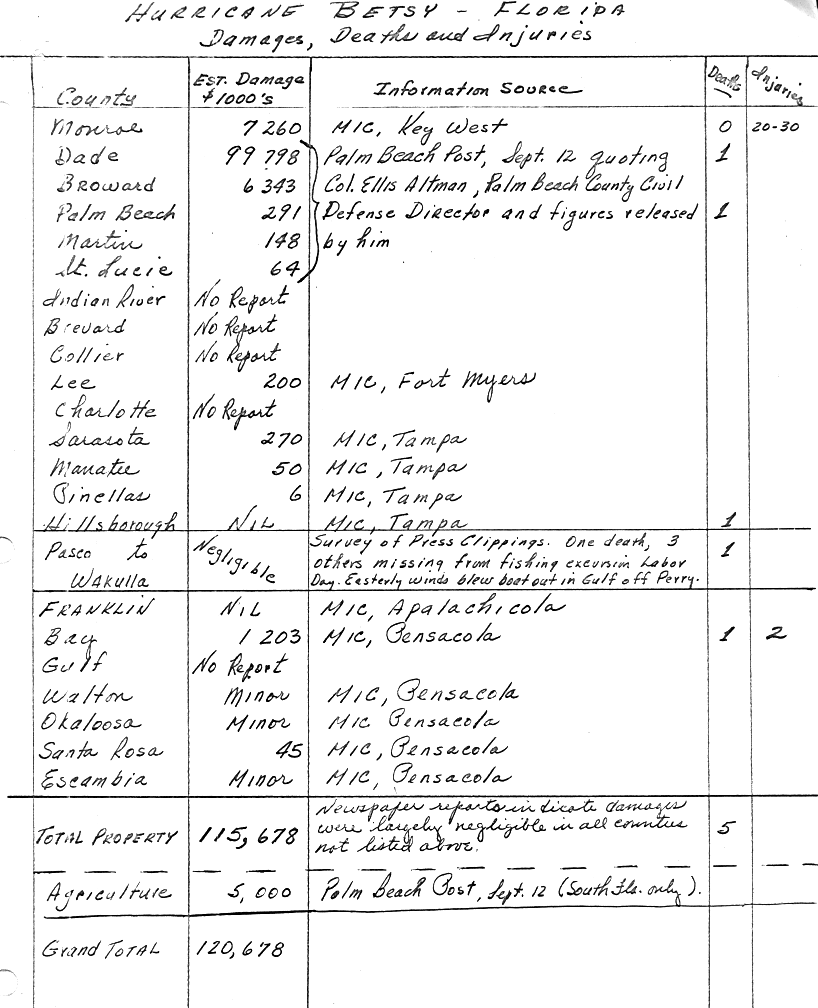 HURRICANE BETSY - FLORIDA
Damages, Deaths and Injuries
County EST. Damage $1000's Information Source Deaths Injuries
Monroe 7 260 MIC, Key West 0 20-30
Dade 99 798 Palm Beach Post, Sept. 12 quoting 1
Broward 6 343 Col. Ellis Altman, Palm Beach County Civil
Palm Beach 291 Defense Director and figures released 1
Martin 148 by him
St. Lucie 64
Indian River No Report
Brevard No Report
Collier No Report
Lee 200 MIC, Fort Myers
Charlotte No Report
Sarasota 270 MIC, Tampa
Manatee 50 MIC, Tampa
Pinellas 6 MIC, Tampa
Hillsborough NIL MIC, Tampa 1
Pasco to Wakulla Negligible Survey of Press Clippings. One death, 3 1
others missing from fishing excursion Labor
Day. Easterly winds blew boat out in Gulf off Perry.
FRANKLIN NIL MIC, Apalachicola
Bay 1 203 MIC, Pensacola 1 2
Gulf No Report
Walton Minor MIC, Pensacola
Okaloosa Minor MIC Pensacola
Santa Rosa 45 MIC, Pensacola
Escambia Minor MIC, Pensacola
TOTAL PROPERTY 115,678 Newspaper reports indicate damages 5
were largely negligible in all counties
not listed above.
Agriculture 5,000 Palm Beach Post, Sept. 12 (South Fla. only).
Grand TOTAL 120,678